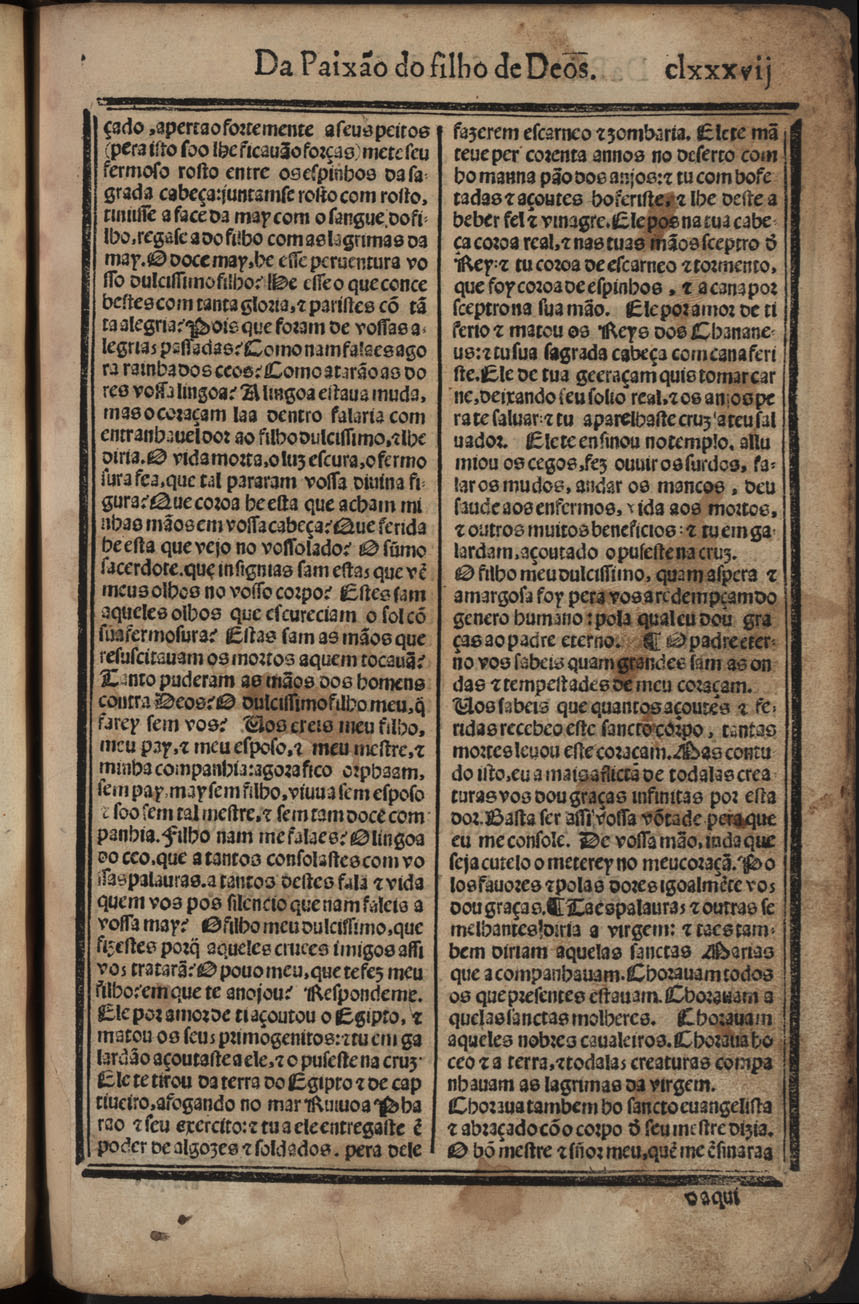 Da Paixão do filho de Deos̃. clxxxvij
çado, aperta o fortemente a seus peitos
(pera isto soo lhe ficauão forças) mete seu
fermoso rosto entre os espinhos da sa-
grada cabeça: juntamse rosto com rosto,
tiniusse a face da may com o sangue do fi-
lho, regase a do filho com as lagrimas da
may. O doce may, he esse peruentura vo
sso dulcissimo filho? He esse o que conce
bestes com tanta gloria, ⁊ paristes cõ tã
ta alegria? Pois que foram de vossas a-
legrias passadas? Como nam falaes ago
ra rainha dos ceos? Como atarão as do
res vossa lingoa? A lingoa estaua muda,
mas o coraçam laa dentro falaria com
entranhauel dor ao filho dulcissimo, ⁊ lhe
diria. O vida morta, o luz escura, o fermo
sura fea, que tal pararam vossa diuina fi-
gura? Que coroa he esta que acham mi
nhas mãos em vossa cabeça? Que ferida
he esta que vejo no vosso lado? O sũmo
sacerdote, que insignias sam estas que vẽ
meus olhos no vosso corpo? Estes sam
aqueles olhos que escureciam o sol cõ
sua fermosura? Estas sam as mãos que
resuscitauam os mortos a quem tocauã?
Tanto puderam as mãos dos homens
contra Deos? O dulcissimo filho meu, q̃
farey sem vos? Vos ereis meu filho,
meu pay, ⁊ meu esposo, ⁊ meu mestre, ⁊
minha companhia: agora fico orphaam,
sem pay, may sem filho, viuua sem esposo
⁊ soo sem tal mestre, ⁊ sem tam doce com
panhia. Filho nam me falaes? O lingoa
do ceo, que a tantos consolastes com vo
ssas palauras, a tantos destes fala ⁊ vida
quem vos pos silencio que nam faleis a
vossa may? O filho meu dulcissimo, que
fizestes porq̃ aqueles cruees imigos assi
vos tratarã? O pouo meu, que te fez meu
filho? em que te anojou? Respondeme.
Ele por amor de ti açoutou o Egipto, ⁊
matou os seus primogenitos: ⁊ tu em ga
lardão açoutaste a ele, ⁊ o puseste na cruz.
Ele te tirou da terra do Egipto ⁊ de cap
tiueiro, afogando no mar Ruiuo a Pha
rao ⁊ seu exercito: ⁊ tu a ele entregaste ẽ
poder de algozes ⁊ soldados, pera dele
fazerem escarneo ⁊ zombaria. Ele te mã
teue per corenta annos no deserto com
ho manna pão dos anjos: ⁊ tu com bofe
tadas ⁊ açoutes ho feriste, ⁊ lhe deste a
beber fel ⁊ vinagre. Ele pos na tua cabe-
ça coroa real, ⁊ nas tuas mãos sceptro d̃
Rey: ⁊ tu coroa de escarneo ⁊ tormento,
que foy coroa de espinhos, ⁊ a cana por
sceptro na sua mão. Ele por amor de ti
ferio ⁊ matou os Reys dos Chanane-
us: ⁊ tu sua sagrada cabeça com cana feri
ste. Ele de tua geeraçam quis tomar car
ne, deixando seu solio real, ⁊ os anjos pe
ra te saluar: ⁊ tu aparelhaste cruz a teu sal
uador. Ele te ensinou no templo, allu
miou os cegos, fez ouuir os surdos, fa-
lar os mudos, andar os mancos, deu
saude aos enfermos, vida aos mortos,
⁊ outros muitos beneficios: ⁊ tu em ga-
lardam, açoutado o puseste na cruz.
O filho meu dulcissimo, quam aspera ⁊
amargosa foy pera vos a redempçam do
genero humano: pola qual eu dou gra
ças ao padre eterno. ¶ O padre eter-
no vos sabeis quam grandes sam as on
das ⁊ tempestades de meu coraçam.
Uos sabeis que quantos açoutes ⁊ fe-
ridas recebeo este sancto corpo, tantas
mortes leuou este coraçam. Mas contu
do isto, eu a mais aflictã de todalas crea
turas vos dou graças infinitas por esta
dor. Basta ser assi vossa võtade pera que
eu me console. De vossa mão, inda que
seja cutelo o meterey no meu coraçã. Po
los fauores ⁊ polas dores igoalmẽte vos
dou graças. ¶ Taes palauras ⁊ outras se
melhantes diria a virgem: ⁊ taes tam-
bem diriam aquelas sanctas Marias
que a companhauam. Chorauam todos
os que presentes estauam. Chorauam a
quelas sanctas molheres. Chorauam
aqueles nobres caualeiros. Choraua ho
ceo ⁊ a terra, ⁊ todalas creaturas compa
nhauam as lagrimas da virgem.
Choraua tambem ho sancto euangelista
⁊ abraçado cõ o corpo d̃ seu mestre dizia.
O bõ mestre ⁊ sñor meu, quẽ me ẽsinara a
daqui